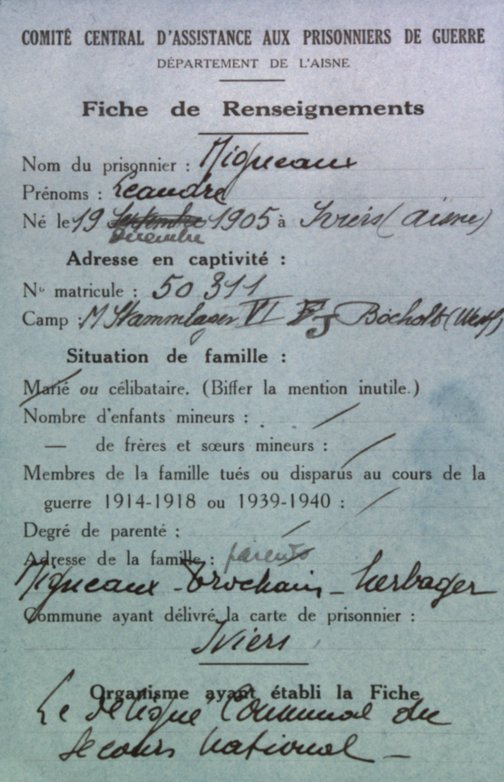 COMITÉ CENTRAL D'ASSISTANCE AUX PRISONNIERS DE GUERRE
DÉPARTEMENT DE L'AISNE
Fiche de Renseignements
Nom du prisonnier : Migneaux
Prénoms : Léandre
Né le 19 septembre 1905 à Iviers (aisne)
décembre
Adresse en captivité :
No matricule : 50 311
Camp : M Stammlager VI J Bocholt (West)
Situation de famille :
Marié ou célibataire. (Biffer la mention inutile.)
Nombre d'enfants mineurs : /
— de frères et sœurs mineurs : /
Membres de la famille tués ou disparus au cours de la
guerre 1914-1918 ou 1939-1940 : /
Degré de parenté : /
Adresse de la famille : parents
Migneaux - Trochain - herbager
Commune ayant délivré la carte de prisonnier :
Iviers
Organisme ayant établi la Fiche
Le Délégué Communal du
Secours National -